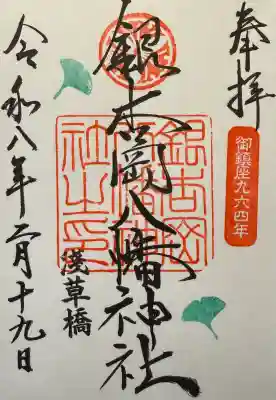 奉拝
御鎮座九六四年
銀杏岡八幡神社
浅草橋
銀杏岡
八幡神
社之印
令和八年二月十九日